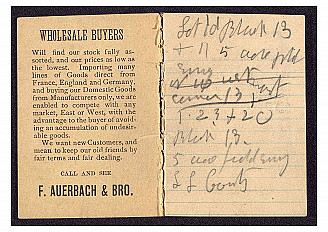 WHOLESALE BUYERS
Will find our stock fully as-
sorted, and our prices as low as
the lowest. Importing many
lines of Goods direct from
France, England and Germany,
and buying our Domestic Goods
from Manufacturers only, we are
enabled to compete with any
market, East or West, with the
advantage to the buyer of avoid-
ing an accumulation of undesir-
able goods.
We want new Customers, and
mean to keep our old friends by
fair terms and fair dealing.
CALL AND SEE
F. AUERBACH & BRO.
Lot 10 Block 13
+ 11 5 acre
corner 13,
Block 13.
5 acre